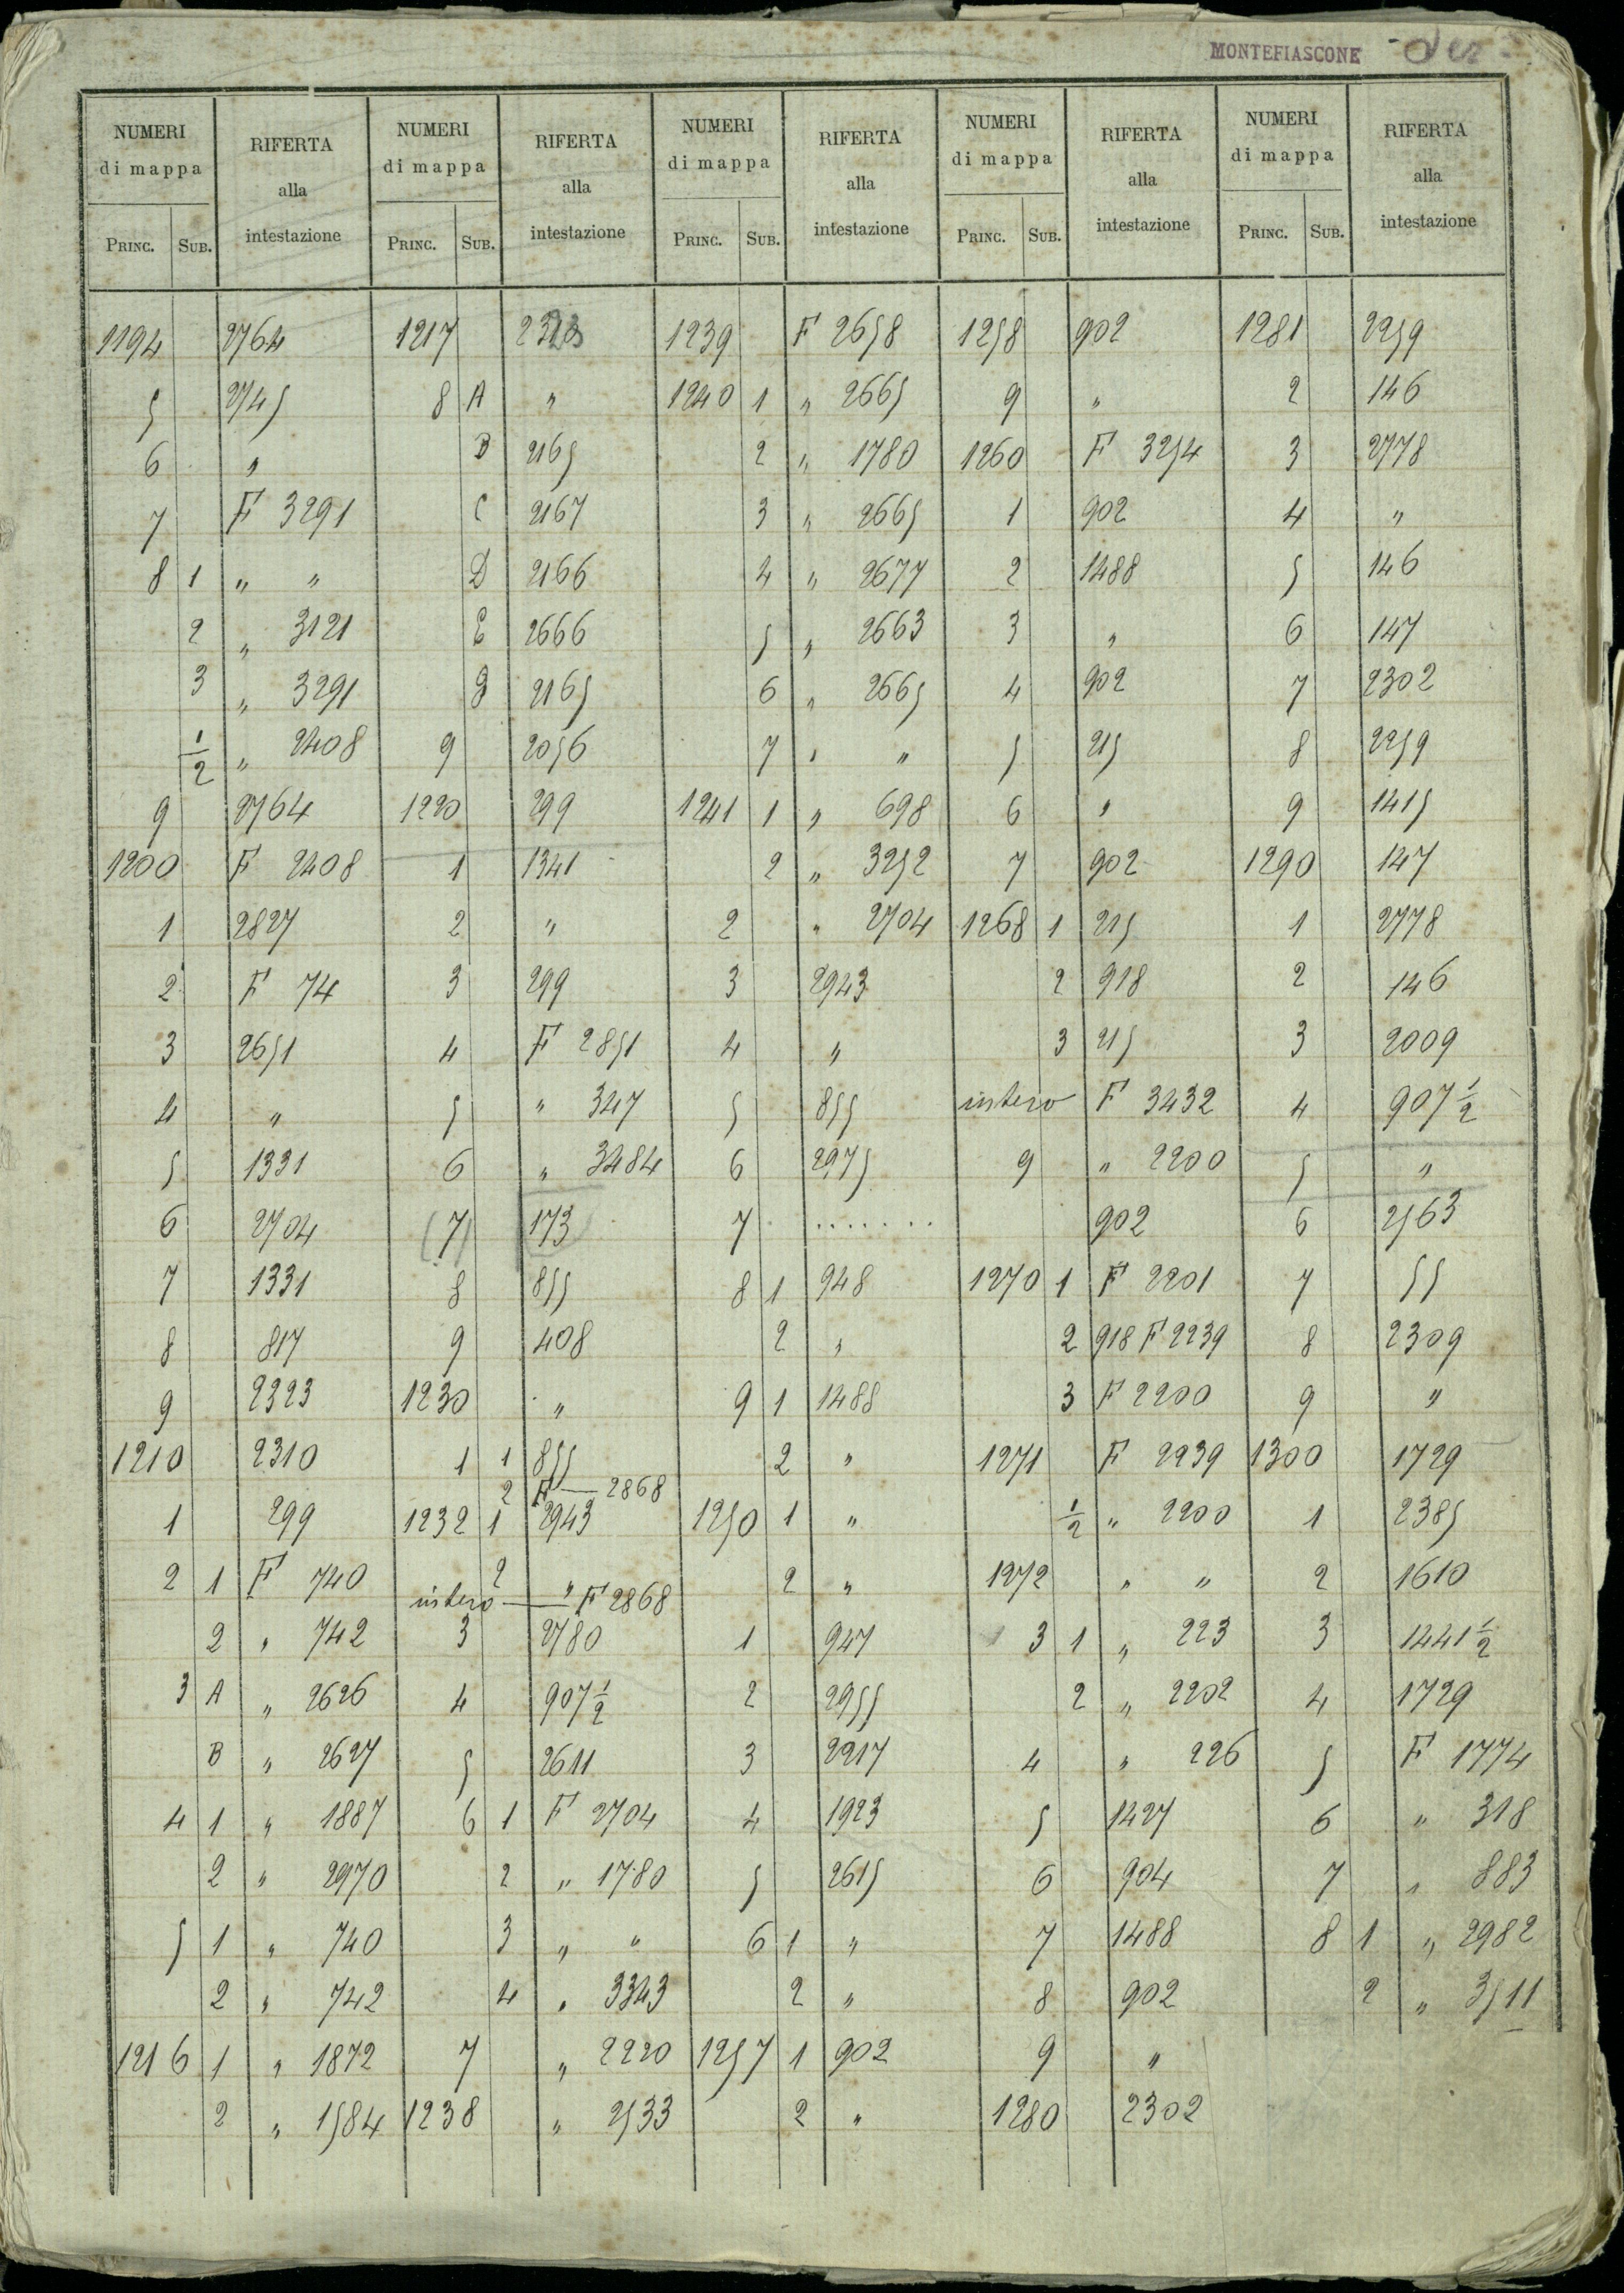 MONTEFIASCONE
NUMERI di mappa RIFERTA alla intestazione NUMERI di mappa RIFERTA alla intestazione NUMERI di mappa RIFERTA alla intestazione NUMERI di mappa RIFERTA alla intestazione NUMERI di mappa RIFERTA alla intestazione
PRINC. SUB. PRINC. SUB. PRINC. SUB. PRINC. SUB. PRINC. SUB.
1194 2764 1217 1239 F 2658 1258 902 1281 2259
5 2745 8 A " 1240 1 " 2665 9 " 2 146
6 " B 2165 2 " 1780 1260 F 3254 3 2778
7 F 3291 C 2167 3 " 2665 1 902 4 "
8 1 " " D 2166 4 " 2677 2 1488 5 146
2 " 3121 E 2666 5 " 2663 3 " 6 147
3 " 3291 2165 6 " 2665 4 902 7 2302
1/2 " 2408 9 2056 7 " " 5 215 8 2259
9 2764 1220 299 1241 1 " 698 6 " 9 1415
1200 F 2408 1 1341 2 " 3252 7 902 1290 147
1 2827 2 " 2 " 2704 1268 1 215 1 2778
2 F 74 3 299 3 2943 2 918 2 146
3 2651 4 F 2851 4 " 3 215 3 2009
4 " 5 " 347 5 855 intero F 3432 4 907 1/2
5 1331 6 " 3484 6 2975 9 " 2200 5 "
6 2704 (7) 173 7 ....... 902 6 2563
7 1331 8 855 8 1 948 1270 1 F 2201 7 55
8 817 9 408 2 " 2 918 F 2239 8 2309
9 2323 1230 " 9 1 1488 3 F 2200 9 "
1210 2310 1 1 855 2 " 1271 F 2239 1300 1729
2 F — 2868
1 299 1232 1 2943 1250 1 " 1/2 " 2200 1 2385
2 1 F 740 2 " 2 " 1272 " " 2 1610
intero — F 2868
2 " 742 3 2780 1 947 3 1 " 223 3 1441 1/2
3 A " 2626 4 907 1/2 2 2955 2 " 2202 4 1729
B " 2627 5 2611 3 2217 4 " 226 5 F 1774
4 1 " 1887 6 1 F 2704 4 1923 5 1427 6 " 318
2 " 2970 2 " 1780 5 2615 6 904 7 " 883
5 1 " 740 3 " " 6 1 " 7 1488 8 1 " 2982
2 " 742 4 " 3343 2 " 8 902 2 " 3511
1216 1 " 1872 7 " 2220 1257 1 902 9 "
2 " 1584 1238 " 2533 2 " 1280 2302